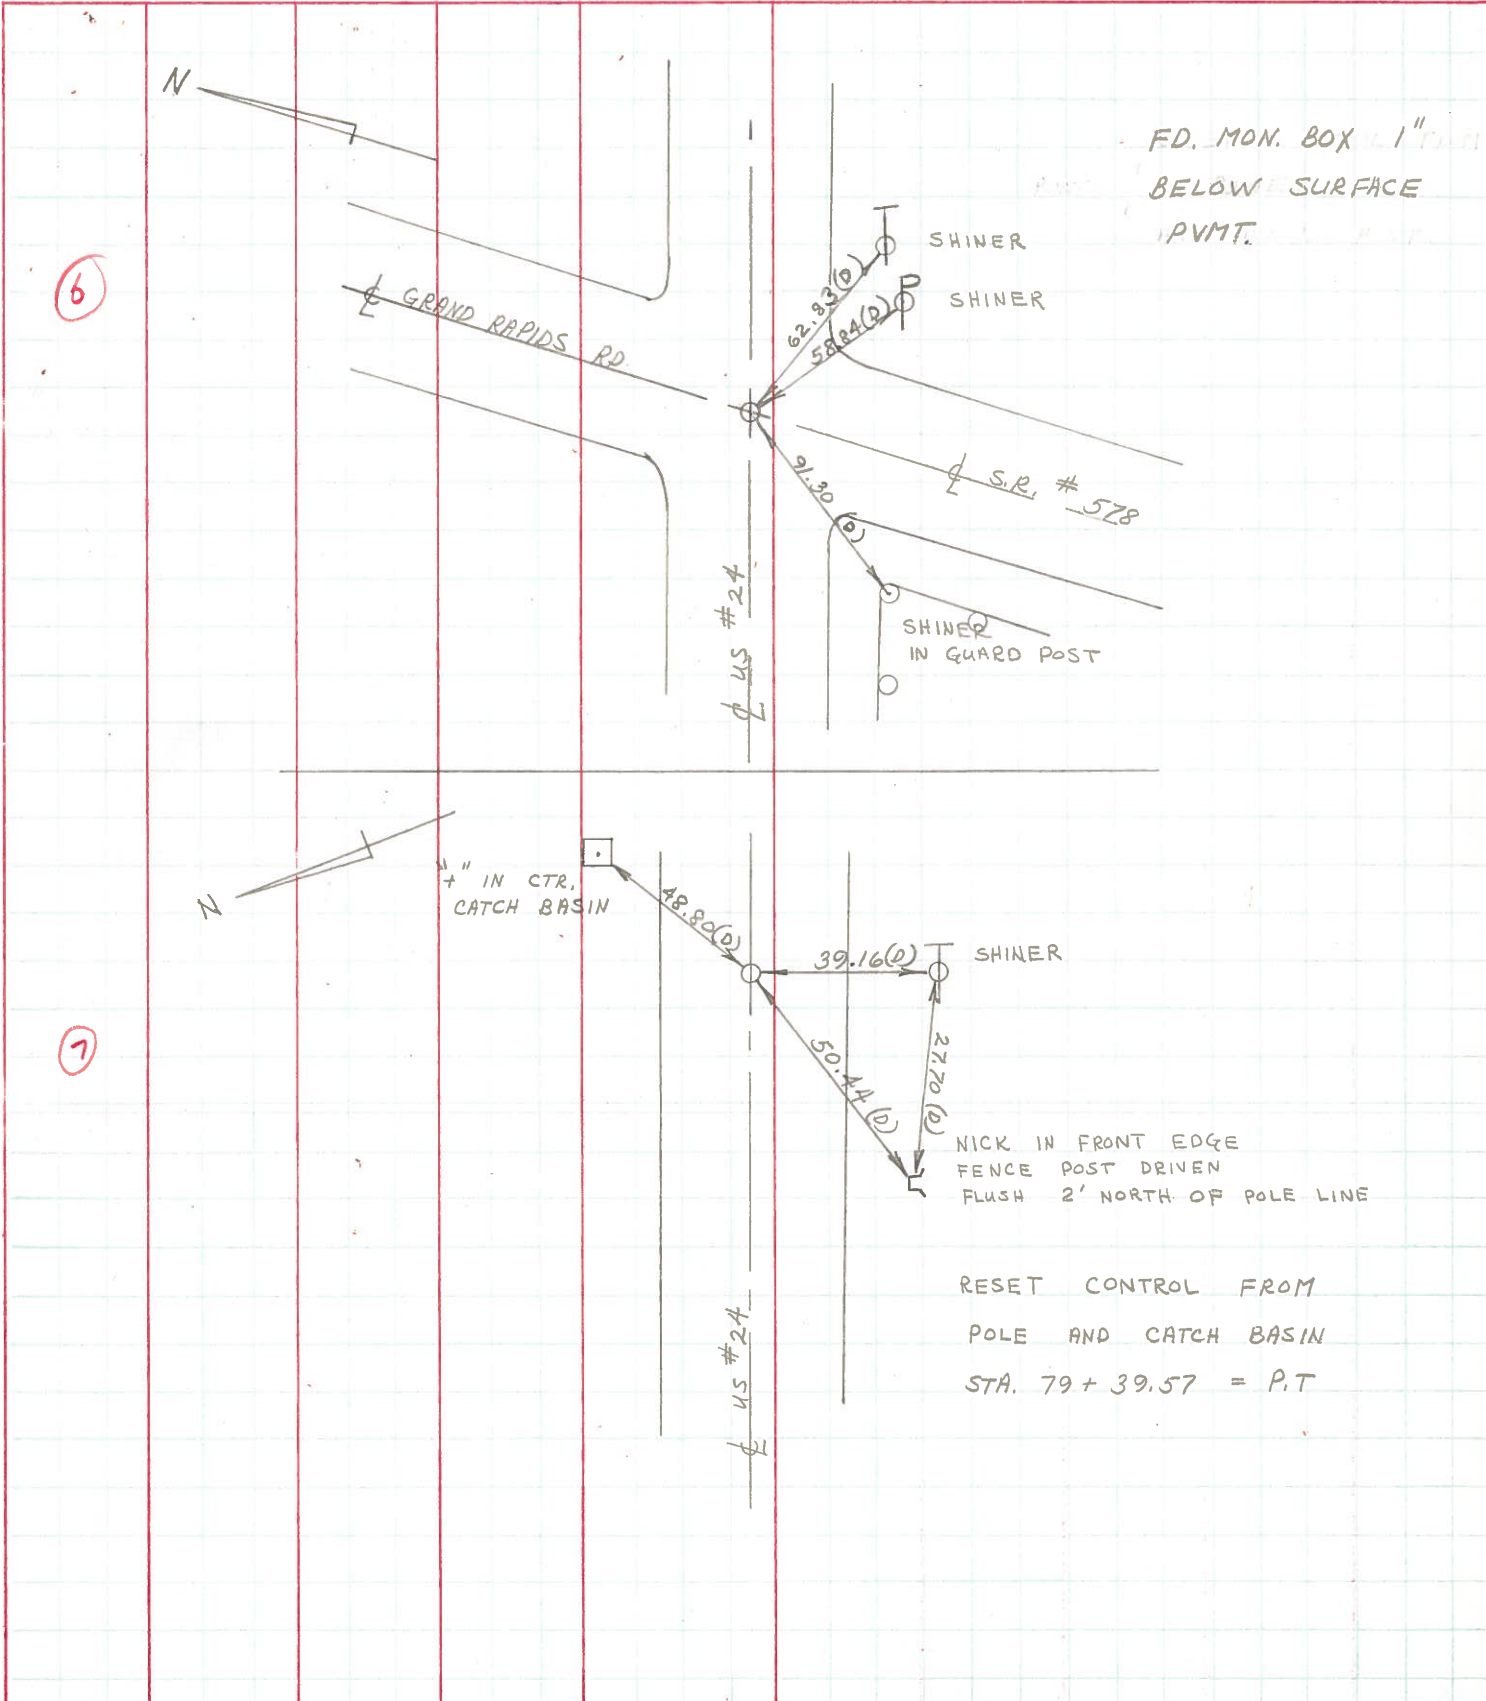 N
FD. MON. BOX 1"
BELOW SURFACE
PVMT.
SHINER
62.83(D)
SHINER
58.84(D)
6
℄ GRAND RAPIDS RD.
91.30 (D)
℄ S.R. # 578
℄ US #24
SHINER
IN GUARD POST
N
"+" IN CTR.
CATCH BASIN
48.80(D)
39.16(D)
SHINER
7
50.44(D)
27.70(D)
NICK IN FRONT EDGE
FENCE POST DRIVEN
FLUSH 2' NORTH OF POLE LINE
RESET CONTROL FROM
POLE AND CATCH BASIN
STA. 79+39.57 = P.T
℄ US #24